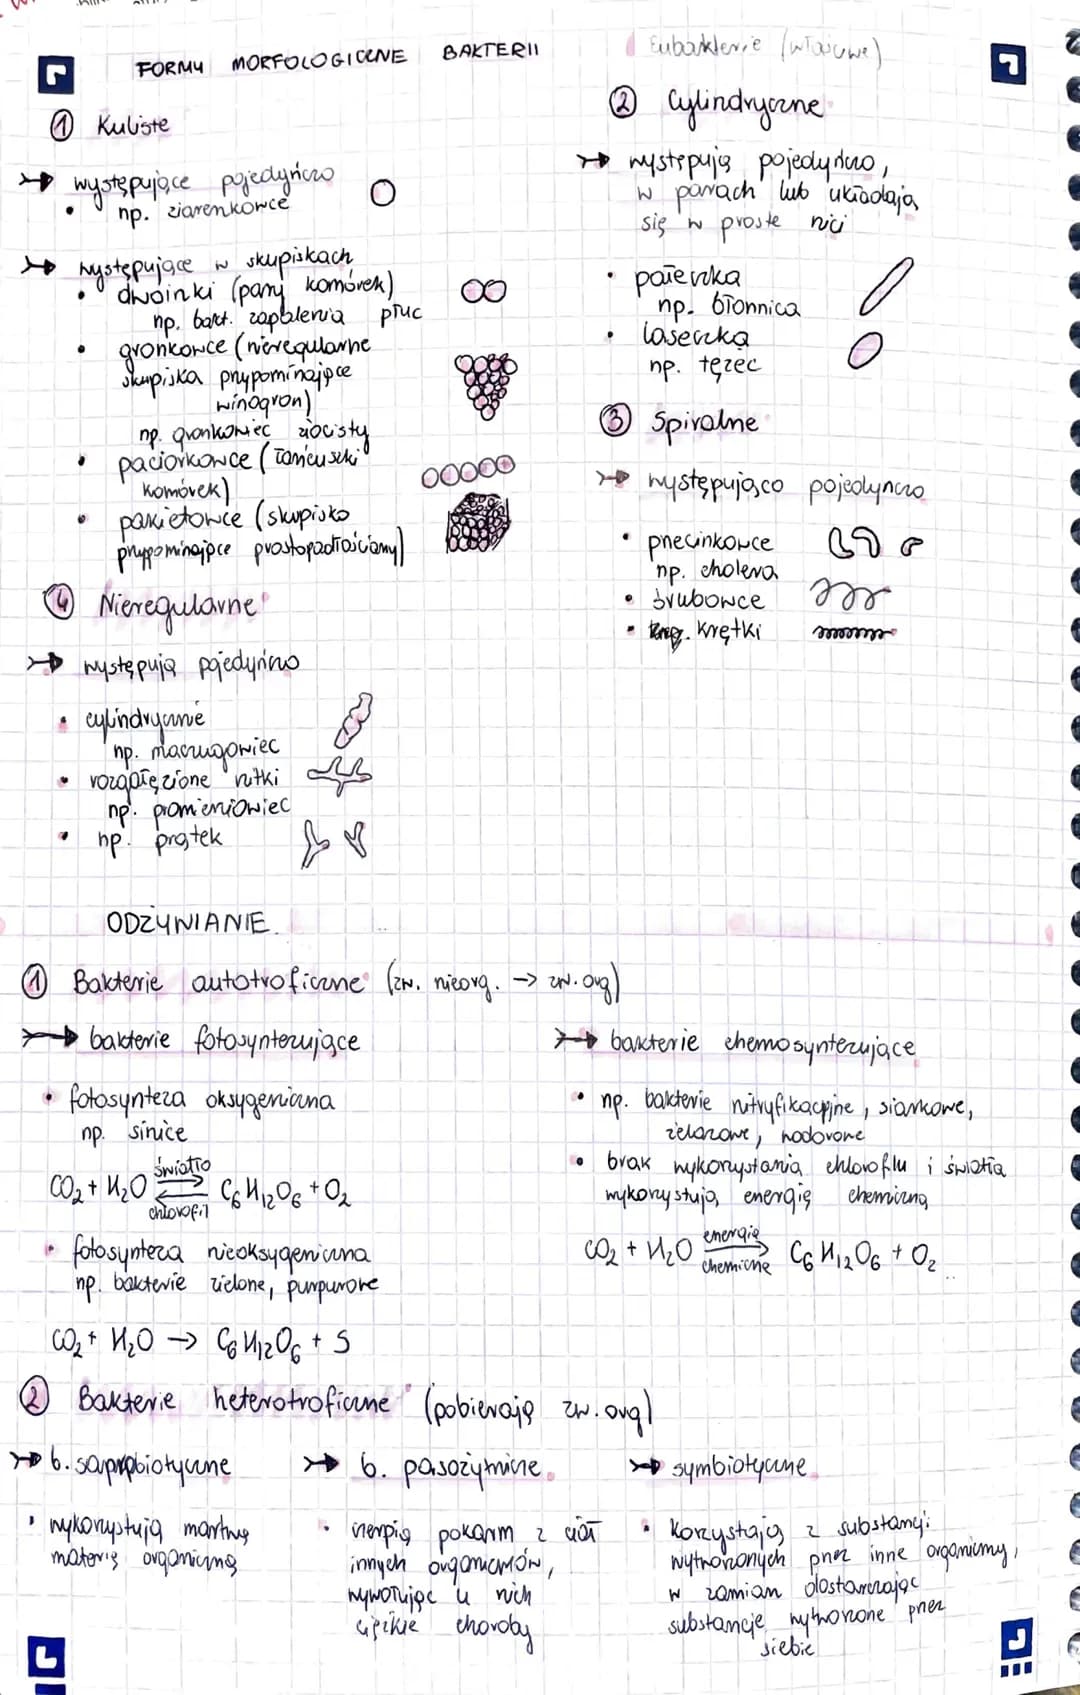 FORMY MORFOLOGICZNE BAKTERII
Eubakterie (właściwe)
① Kuliste
występujące pojedyńczo
• np. ziarenkowce
występujące w skupiskach
• dwoinki (pary komórek)
np. bakt. zapalenia płuc
• gronkowce (nieregularne
skupiska przypominające
winogron)
np. gronkowiec złocisty
• paciorkowce (łańcuszki
komórek)
• pakietowce (skupisko
przypominające prostopadłościamy)
② Cylindryczne
występują pojedyńczo,
w parach lub układają
się w proste nici
• pałeczka
np. błonnica
• laseczka
np. tężec
③ Spiralne
występująco pojedynczo
• przecinkowce
np. cholera
• śrubowce
• krętki
④ Nieregularne
występują pojedyńczo
• cylindryczne
np. maczugowiec
• rozgałęzione nitki
np. promieniowiec
• np. prątek
ODŻYWIANIE
① Bakterie autotroficzne (zw. nieorg. → zw. org)
bakterie fotosyntezujące
• fotosynteza oksygeniczna
np. sinice
światło
CO₂ + H₂O ⇄ C₆H₁₂O₆ + O₂
chlorofil
• fotosynteza nieoksygeniczna
np. bakterie zielone, purpurowe
CO₂ + H₂O → C₆H₁₂O₆ + S
bakterie chemosyntezujące
• np. bakterie nitryfikacyjne, siarkowe,
żelazowe, wodorowe
• brak wykorzystania chloroflu i światła
wykorzystują energię chemiczną
energia
CO₂ + H₂O → C₆H₁₂O₆ + O₂
chemiczne
② Bakterie heterotroficzne (pobierają zw. org)
b. saprobiotyczne
• wykorzystują martwą
materię organiczną
b. pasożytnicze
• czerpią pokarm z ciał
innych organizmów,
wywołując u nich
ciężkie choroby
symbiotyczne
• korzystają z substancji
wytworzonych przez inne organizmy,
w zamian dostarczając
substancje wytworzone przez
siebie